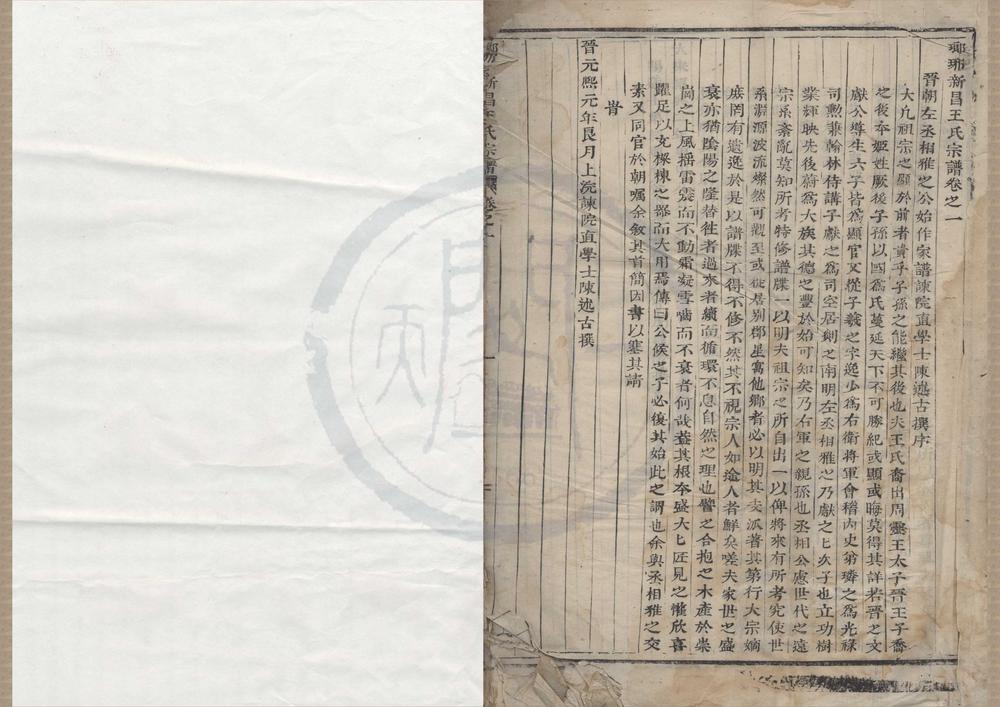 瑯琊新昌王氏宗譜卷之一
晉朝左丞相雅之公始作家譜諫院直學士陳述古撰序
大凡祖宗之顯於前者貴乎子孫之能繼其後也夫王氏裔出周靈王太子晉王子喬
之後本姬姓厥後子孫以國為氏蔓延天下不可勝紀或顯或晦莫得其詳若晉之文
獻公導生六子皆為顯官又從子羲之字逸少為右衛將軍會稽內史第璘之為光祿
司勲兼翰林侍講子獻之為司空居剡之南明左丞相雅之乃獻之七次子也立功樹
業輝映先後蔚為大族其德之豐於始可知矣乃右軍之親孫也丞相公慮世代之遠
宗系紊亂莫知所考特修譜牒一以明夫祖宗之所自出一以俾將來有所考究使世
系淵源波流燦然可觀至或徙居別郡星寓他鄉者必以明其支派著其第行大宗嫡
庶罔有遺逸於是以譜牒不得不修不然其不視宗人如途人者鮮矣嗟夫家世之盛
衰亦猶陰陽之隆替徃者過來者續而循環不息自然之理也譬之合抱之木產於崇
崗之上風搖雷震而不動霜凝雪嚙而不衰者何哉葢其根本盛大匕匠見之惟欣喜
躍足以充樑棟之器而大用焉傳曰公候之子必復其始此之謂也余與丞相雅之交
素又同官於朝囑余敘其首簡因書以塞其請
旹
晉元熙元年艮月上浣諫院直學士陳述古撰
新昌王氏宗譜
卷之一
一